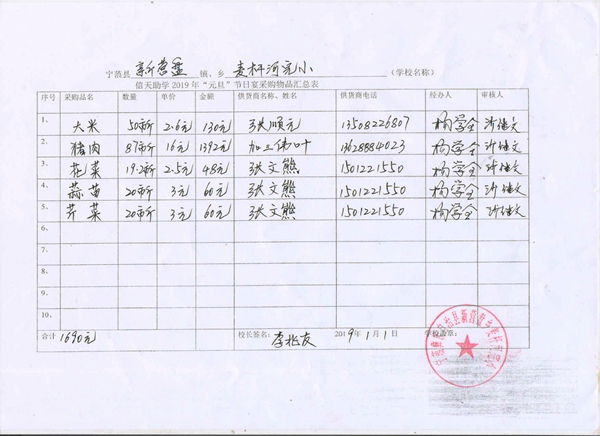 宁蒗县 新营盘 镇、乡 麦杆河完小 （学校名称）
信天助学 2019 年“元旦”节日宴采购物品汇总表
序号 采购品名 数量 单价 金额 供货商名称、姓名 供货商电话 经办人 审核人
1. 大米 50市斤 2.6元 130元 张顺元 13508226807 杨学全
2. 猪肉 87市斤 16元 1392元 13628884023 杨学全
3. 花菜 19.2市斤 2.5元 48元 张文熊 1501221550 杨学全
4. 蒜苗 20市斤 3元 60元 张文熊 1501221550 杨学全
5. 芹菜 20市斤 3元 60元 张文熊 1501221550 杨学全
6.
7.
8.
9.
10.
合计 1690元 校长签名： 李兆友 2019年1月1日 学校盖章：